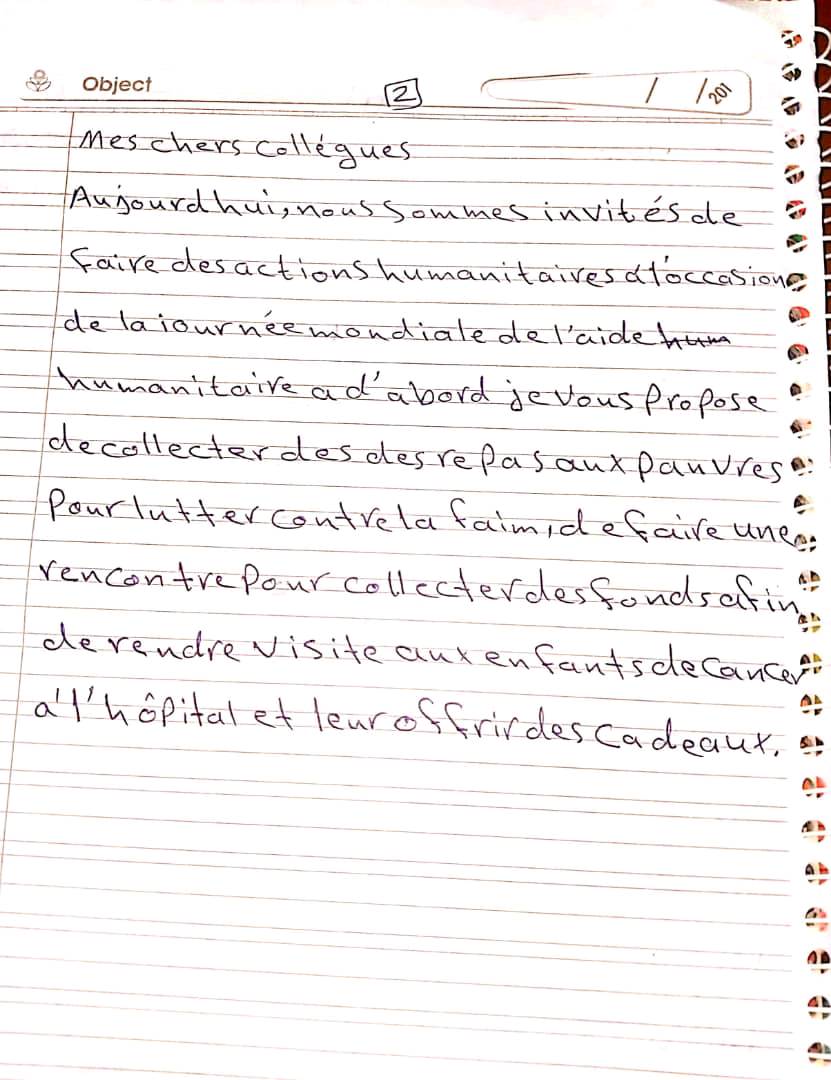 Object
2
/ /201
Mes chers collégues
Aujourd hui, nous sommes invités de
faire des actions humanitaires à l'occasion
de la journée mondiale de l'aide hum
humanitaire a d'abord je vous propose
de collecter des des repas aux pauvres
Pour lutter contre la faim, de faire une
rencontre pour collecter des fonds afin
de rendre visite aux enfants de cancer
a' l'hôpital et leur offrir des cadeaux.